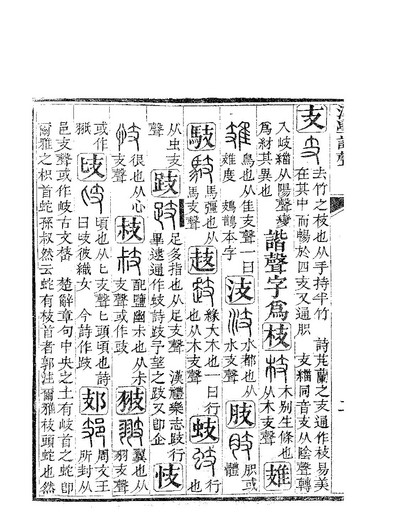 支
去竹之枝也从手持半竹 詩芄蘭之支通作枝易美
在其中而暢於四支又通胑 支緇同音支从陰聲轉
入歧緇从陽聲變
為紂其異也
諧聲字為枝
木別生條也
从木支聲
䧴
鳥也从隹支聲一曰
雉度 鳷鵲本字
汥
水都也从
水支聲
肢
胑或
體
馶
馬彊也从
馬支聲
䞚
緣大木也一曰行
也从木支聲
蚑
行也
从虫支
聲
跂
足多指也从足支聲 漢禮樂志跂行
畢逮通作蚑詩跂予望之跂又即企
忮
很也从心
支聲
枝
配鹽幽尗也从尗
支聲或作
翄
翼也从
羽支聲
或作
頃也从匕支聲匕頭頃也詩
曰 彼織女 今詩作跂
周文王
所封从
邑支聲或作岐古文 楚辭章句中央之土有岐首之蛇即
爾雅之枳首蛇孫叔然云蛇有枝首者郭注爾雅枝頭蛇也然